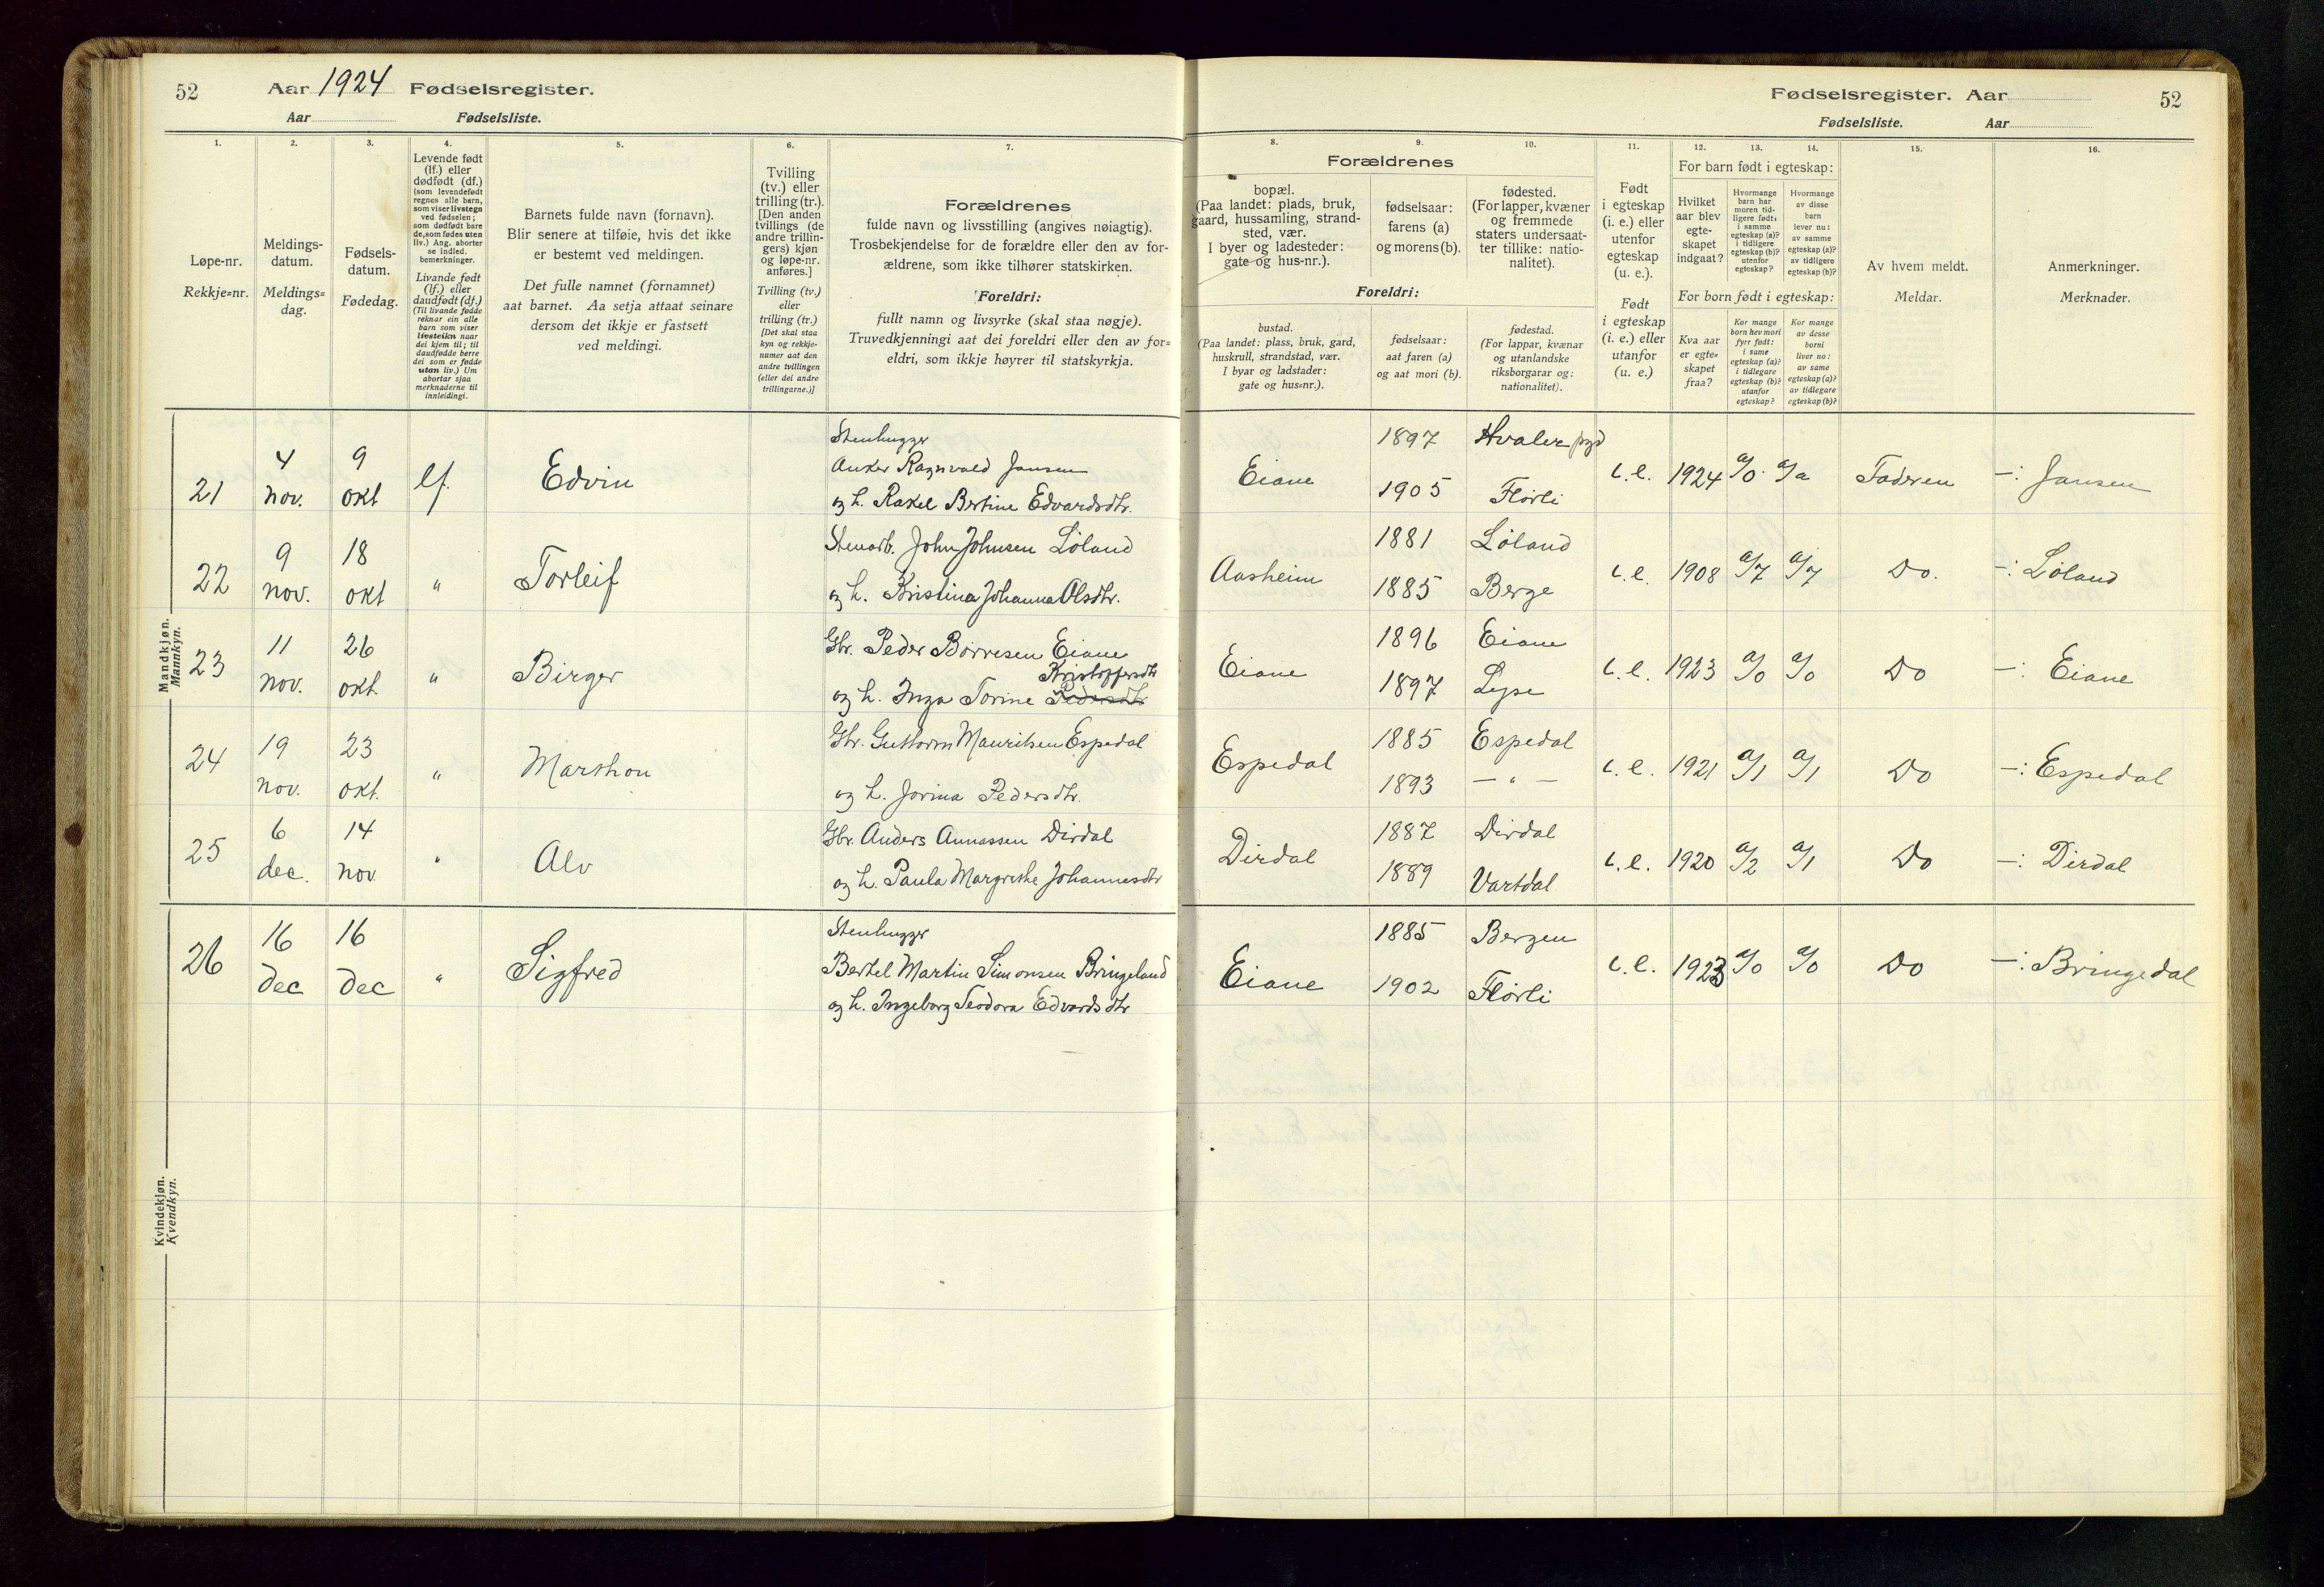 52
Aar 1924 Fødselsregister.
Aar Fødselsliste.
1.
2.
3.
4.
5.
6.
7.
Løpe-nr.
Rekkje=nr.
Meldings-
datum.
Meldings=
dag.
Fødsels-
datum.
Fødedag.
Levende født
(lf.) eller
dødfødt (df.)
(som levendefødt
regnes alle barn,
som viser livstegn
ved fødselen;
som dødfødt bare
de, som fødes uten
liv.) Ang. aborter
se indled.
bemerkninger.
Livande født
(lf.) eller
daudfødt (df.)
(Til livande fødde
reknar ein alle
barn som viser
livsteikn naar
dei kjem til; til
daudfødde berre
dei som er fødde
utan liv.) Um
abortar sjaa
merknaderne til
innleidingi.
Barnets fulde navn (fornavn).
Blir senere at tilføie, hvis det ikke
er bestemt ved meldingen.
Det fulle namnet (fornamnet)
aat barnet. Aa setja attaat seinare
dersom det ikkje er fastsett
ved meldingi.
Tvilling
(tv.) eller
trilling (tr.).
[Den anden
tvillings (de
andre trillin-
gers) kjøn
og løpe-nr.
anføres.]
Tvilling (tv.)
eller
trilling (tr.)
[Det skal staa
kyn og rekkje-
numer aat den
andre tvillingen
(eller dei andre
trillingarne.)]
Forældrenes
fulde navn og livsstilling (angives nøiagtig).
Trosbekjendelse for de forældre eller den av for-
ældrene, som ikke tilhører statskirken.
Foreldri:
fullt namn og livsyrke (skal staa nøgje).
Truvedkjenningi aat dei foreldri eller den av for=
eldri, som ikkje høyrer til statskyrkja.
Mandkjøn.
Mannkyn.
21
4
nov.
9
okt
lf.
Edvin
Stenhugger
Anker Ragnvald Jansen
og h. Rakel Bertine Edvardsdtr.
22
9
nov.
18
okt
"
Torleif
Stenarb. John Johnsen Løland
og h. Kristina Johanna Olsdtr.
23
11
nov.
26
okt.
"
Birger
Gbr. Peder Børresen Eiane
Kristoffersdtr
og h. Inga Torine Pedersdtr
24
19
nov.
23
okt.
"
Marthon
Gbr. Guttorm Mauritsen Espedal
og h. Jorina Pedersdtr.
25
6
dec.
14
nov.
"
Alv
Gbr. Anders Annassen Dirdal
og h. Paula Margrethe Johannesdtr
26
16
dec
16
dec
"
Sigfred
Stenhugger
Bertel Martin Simonsen Bringeland
og h. Ingeborg Teodora Edvardsdtr
Kvindekjøn.
Kvendkyn.
Fødselsregister. Aar
52
Fødselsliste. Aar
8.
9.
10.
11.
12.
13.
14.
15.
16.
Forældrenes
bopæl.
(Paa landet: plads, bruk,
gaard, hussamling, strand-
sted, vær.
I byer og ladesteder:
gate og hus-nr.).
fødselsaar:
farens (a)
og morens (b).
fødested.
(For lapper, kvæner
og fremmede
staters undersaat-
ter tillike: natio-
nalitet).
Foreldri:
bustad.
(Paa landet: plass, bruk, gard,
huskrull, strandstad, vær.
I byar og ladstader:
gate og hus=nr.).
fødselsaar:
aat faren (a)
og aat mori (b).
fødestad.
(For lappar, kvænar
og utanlandske
riksborgarar og:
nationalitet).
Født
i egteskap
(i. e.) eller
utenfor
egteskap
(u. e.).
Født
i egteskap
(i. e.) eller
utanfor
(u. e.)
For barn født i egteskap:
Hvilket
aar blev
egte-
skapet
indgaat?
Hvormange
barn har
moren tid-
ligere født:
i samme
egteskap (a)?
i tidligere
egteskap (b)?
utenfor
egteskap?
Hvormange
av disse
barn
lever nu:
av samme
egteskap (a)?
av tidligere
egteskap (b)?
For born født i egteskap:
Kva aar
er egte=
skapet
fraa?
Kor mange
born hev mori
fyrr født:
i same
egteskap (a)?
i tidlegare
egteskap (b)?
utanfor
egteskap?
Kor mange
av desse
borni
liver no:
av same
egteskap (a)?
av tidlegare
egteskap (b)?
Av hvem meldt.
Meldar.
Anmerkninger.
Merknader.
Eiane
1897
1905
Hvaler pgd
Flørli
i. e.
1924
a/0
a/a
Faderen
–: Jansen
Aasheim
1881
1885
Løland
Berge
i. e.
1908
a/7
a/7
Do.
–: Løland
Eiane
1896
1897
Eiane
Lyse
i. e.
1923
a/0
a/0
Do
–: Eiane
Espedal
1885
1893
Espedal
– " –
i. e.
1921
a/1
a/1
Do
–: Espedal
Dirdal
1887
1889
Dirdal
Vartdal
i. e.
1920
a/2
a/1
Do
–: Dirdal
Eiane
1885
1902
Bergen
Flørli
i. e.
1923
a/0
a/0
Do
–: Bringedal